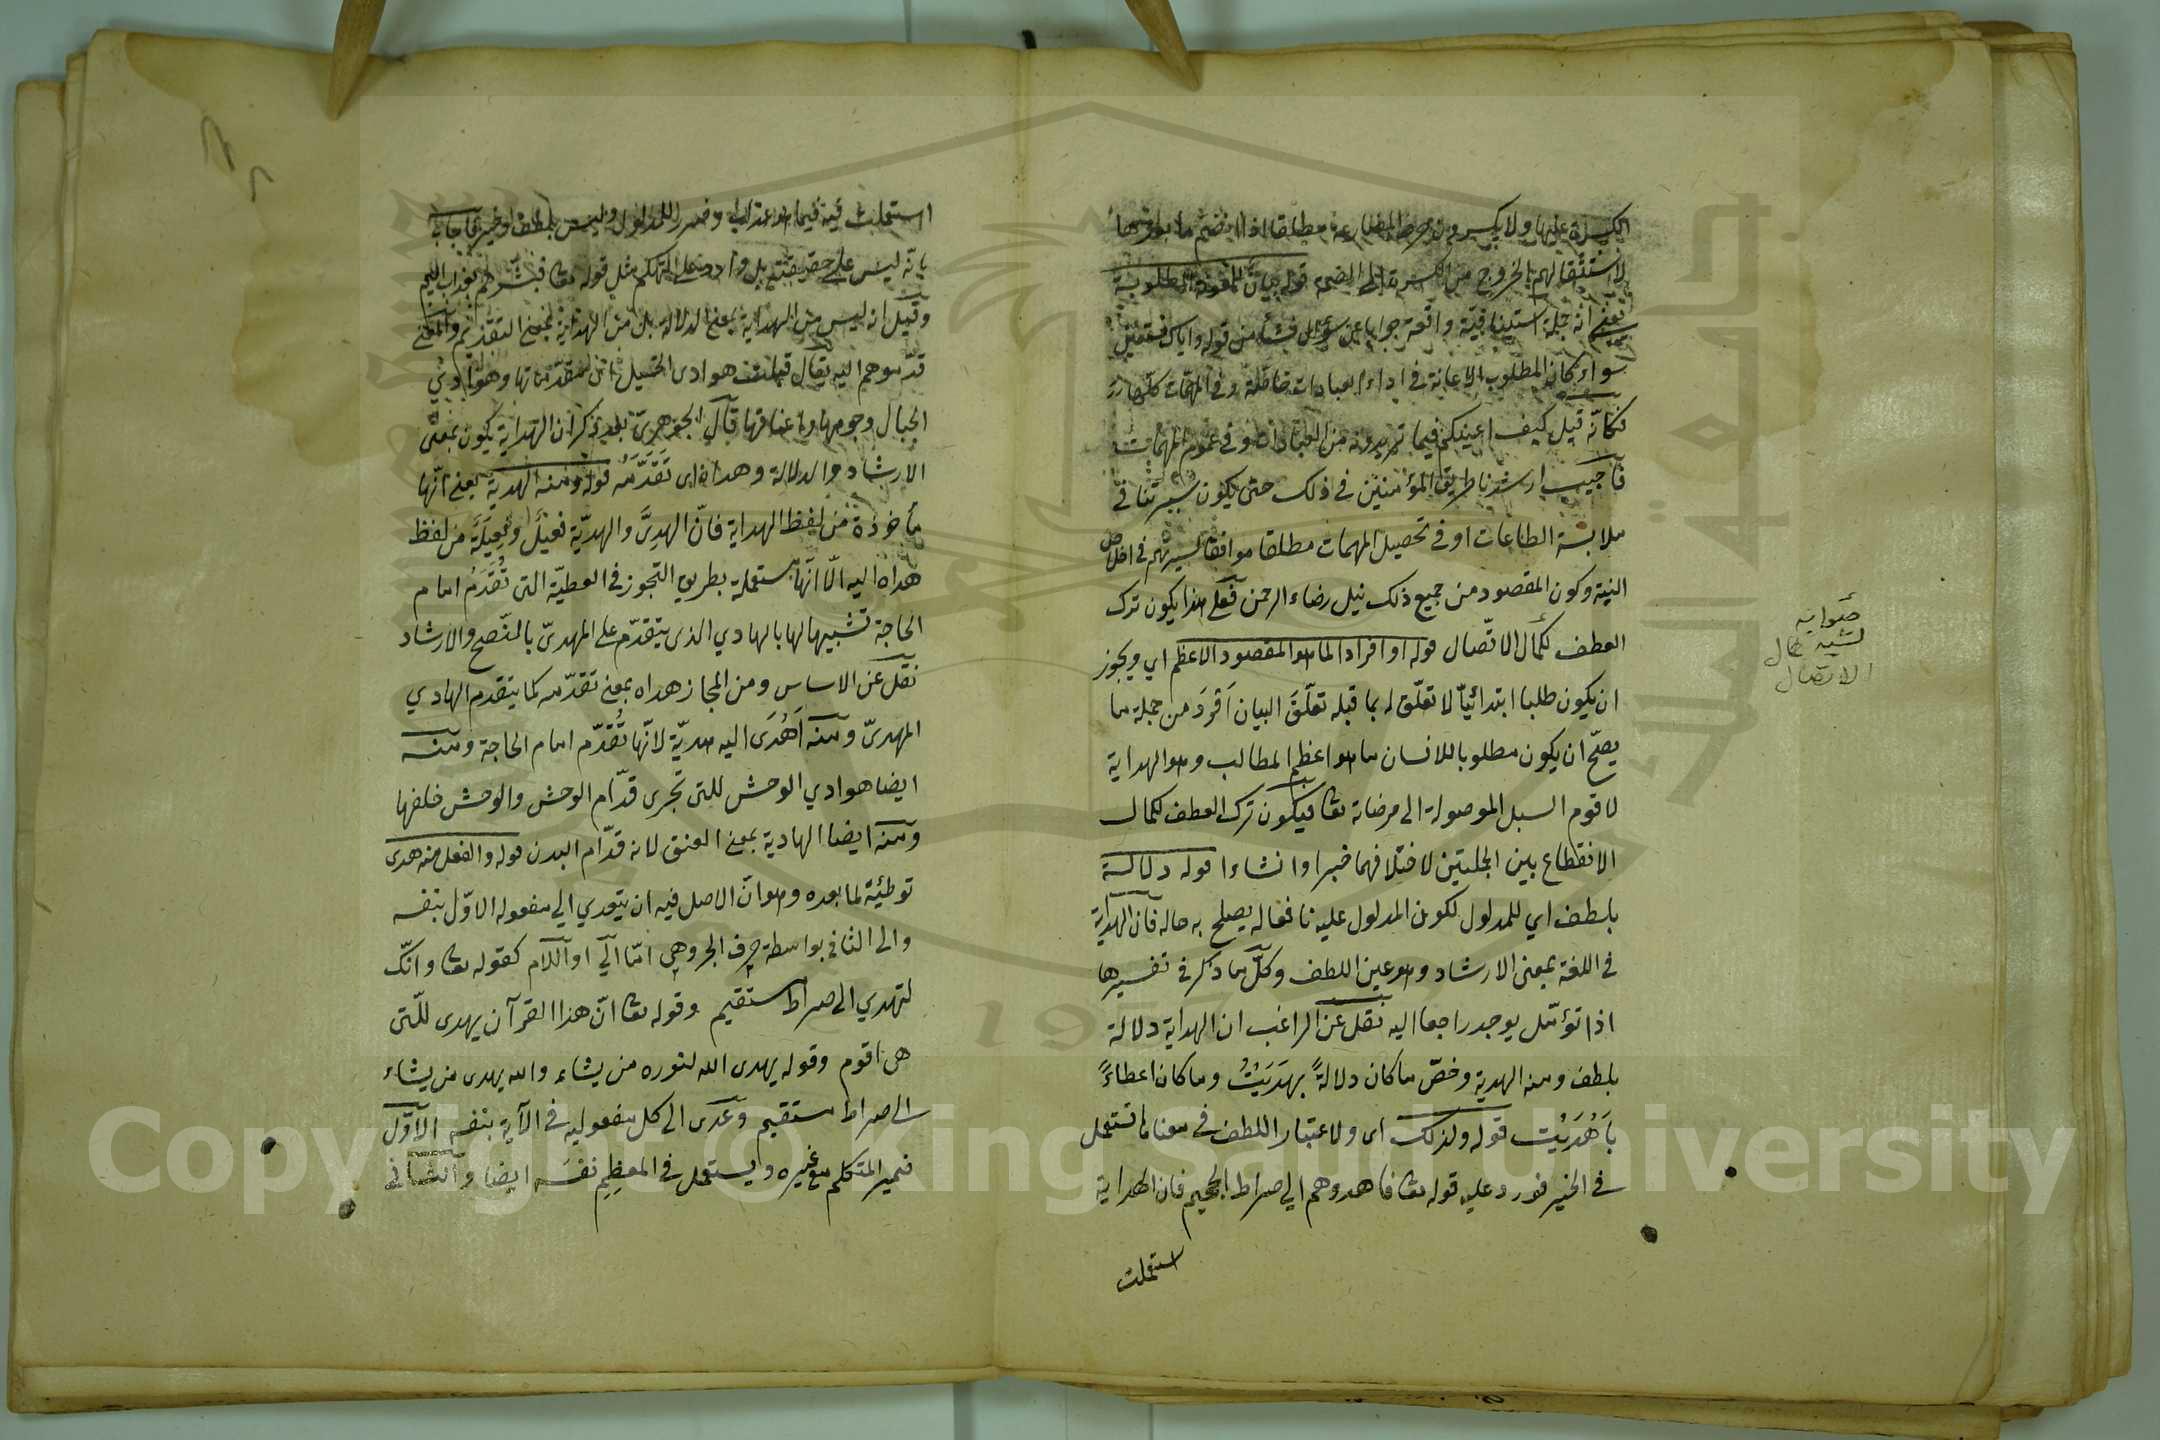 الكسرة عليها ولا يكسرون حرف المضارعة مطلقا اذا انضم ما بعدها
لاستثقالهم الخروج من الكسرة الى الضمة قوله بيان للمعونة المطلوبة
يعني انه جملة استينافية واقعة جوابا عن سؤال نشأ من قوله واياك نستعين
سواء كان المطلوب الاعانة في اداء العبادات خاصة او في المهمات كلها
فكانّه قيل كيف اعينكم فيما تريدونه من العبادات او في عموم المهمات
فاجيب ارشدنا طريق المؤمنين في ذلك حتى يكون سيرتنا في
ملابسة الطاعات او في تحصيل المهمات مطلقا موافقا لسيرتهم في اخلاص
النية وكون المقصود من جميع ذلك نيل رضاء الرحمن فعلى هذا يكون ترك
العطف لكمال الاتّصال قوله او افراد لما هو المقصود الاعظم اي ويجوز
ان يكون طلبا ابتدائيّا لا تعلّق له بما قبله تعلّقَ البيان اَفردَ من جملة ما
يصحّ ان يكون مطلوبا للانسان ما هو اعظم المطالب وهو الهداية
لاقوم السبل الموصولة الى مرضاته تعا فيكون ترك العطف لكمال
الانقطاع بين الجملتين لاختلافهما خبرا وانشاءا قوله دلالة
بلطف اي للمدلول لكون المدلول عليه نافعا له يصلح به حاله فان الهداية
في اللغة بمعنى الارشاد وهو عين اللطف وكلّ ما ذكر في تفسيرها
اذا تؤمّل يوجد راجعا اليه نقل عن الراغب ان الهداية دلالة
بلطف ومنه الهدية وخصّ ما كان دلالةً بهَدَيْتُ وما كان اعطاءً
باَهْدَيْت قوله ولذلك اى ولاعتبار اللطف في معناها تستعمل
في الخير فورد عليه قوله تعا فاهدوهم الي صراط الجحيم فان الهداية
استعملت
صوابه
لشبه كمال
الاتصال
استعملت فيه فيما هو عذاب وضرر للمدلول وليس بلطف وخير فاجاب
بانّه ليس على حقيقته بل وارد على التهكم مثل قوله تعا فبشّرهم بعذاب اليم
وقيل انه ليس من الهداية بمعنى الدلالة بل من الهداية بمعنى التقديم والمعنى
قدّموهم اليه يقال هوادى الخيل اى لمتقدماتها وهوادي
الجبال وحومها واعناقها قال الجوهرىّ بعد ذكر ان الهداية يكون بمعنى
الارشاد والدلالة وهداه اى تَقَدَّمَه قوله ومنه الهدية يعنى انّها
مأخوذة من لفظ الهداية فانّ الهدِىَّ والهديّة فعيل وفعِيلَة من لفظ
هداه اليه الّا انّها مستعملة بطريق التجوز في العطيّة التى تُقَدَمُ امام
الحاجة تشبيها لها بالهادي الذى يتقدّم على المهدىّ بالنّصح والارشاد
نقل عن الاساس ومن المجاز هداه بمعنى تقدّمه كما يتقدم الهادي
المهدىّ ومنه اَهْدَى اليه هديّة لانّها تُقدّم امام الحاجة ومنه
ايضا هوادي الوحش للتى تجرى قدّام الوحش والوحش خلفها
ومنه ايضا الهادية بمعنى العنق لانه قدّام البدن قوله والفعل منه هدى
توطئية لما بعده وهو انّ الاصل فيه ان يتعدي الي مفعوله الاوّل بنفسه
والى الثاني بواسطة حرف الجر وهي امّا الي او اللام كقوله تعا وانّك
لتهدي الى صراط مستقيم وقوله تعا انّ هذا القرآن يهدى للّتى
هى اقوم وقوله يهدى الله لنوره من يشاء والله يهدى من يشاء
الى صراط مستقيم وعدى الى كل مفعوليه في الآية بنفسه الاوّل
ضمير المتكلم مع غيره ويستعمل في المعظِم نفسَه ايضا والثانى